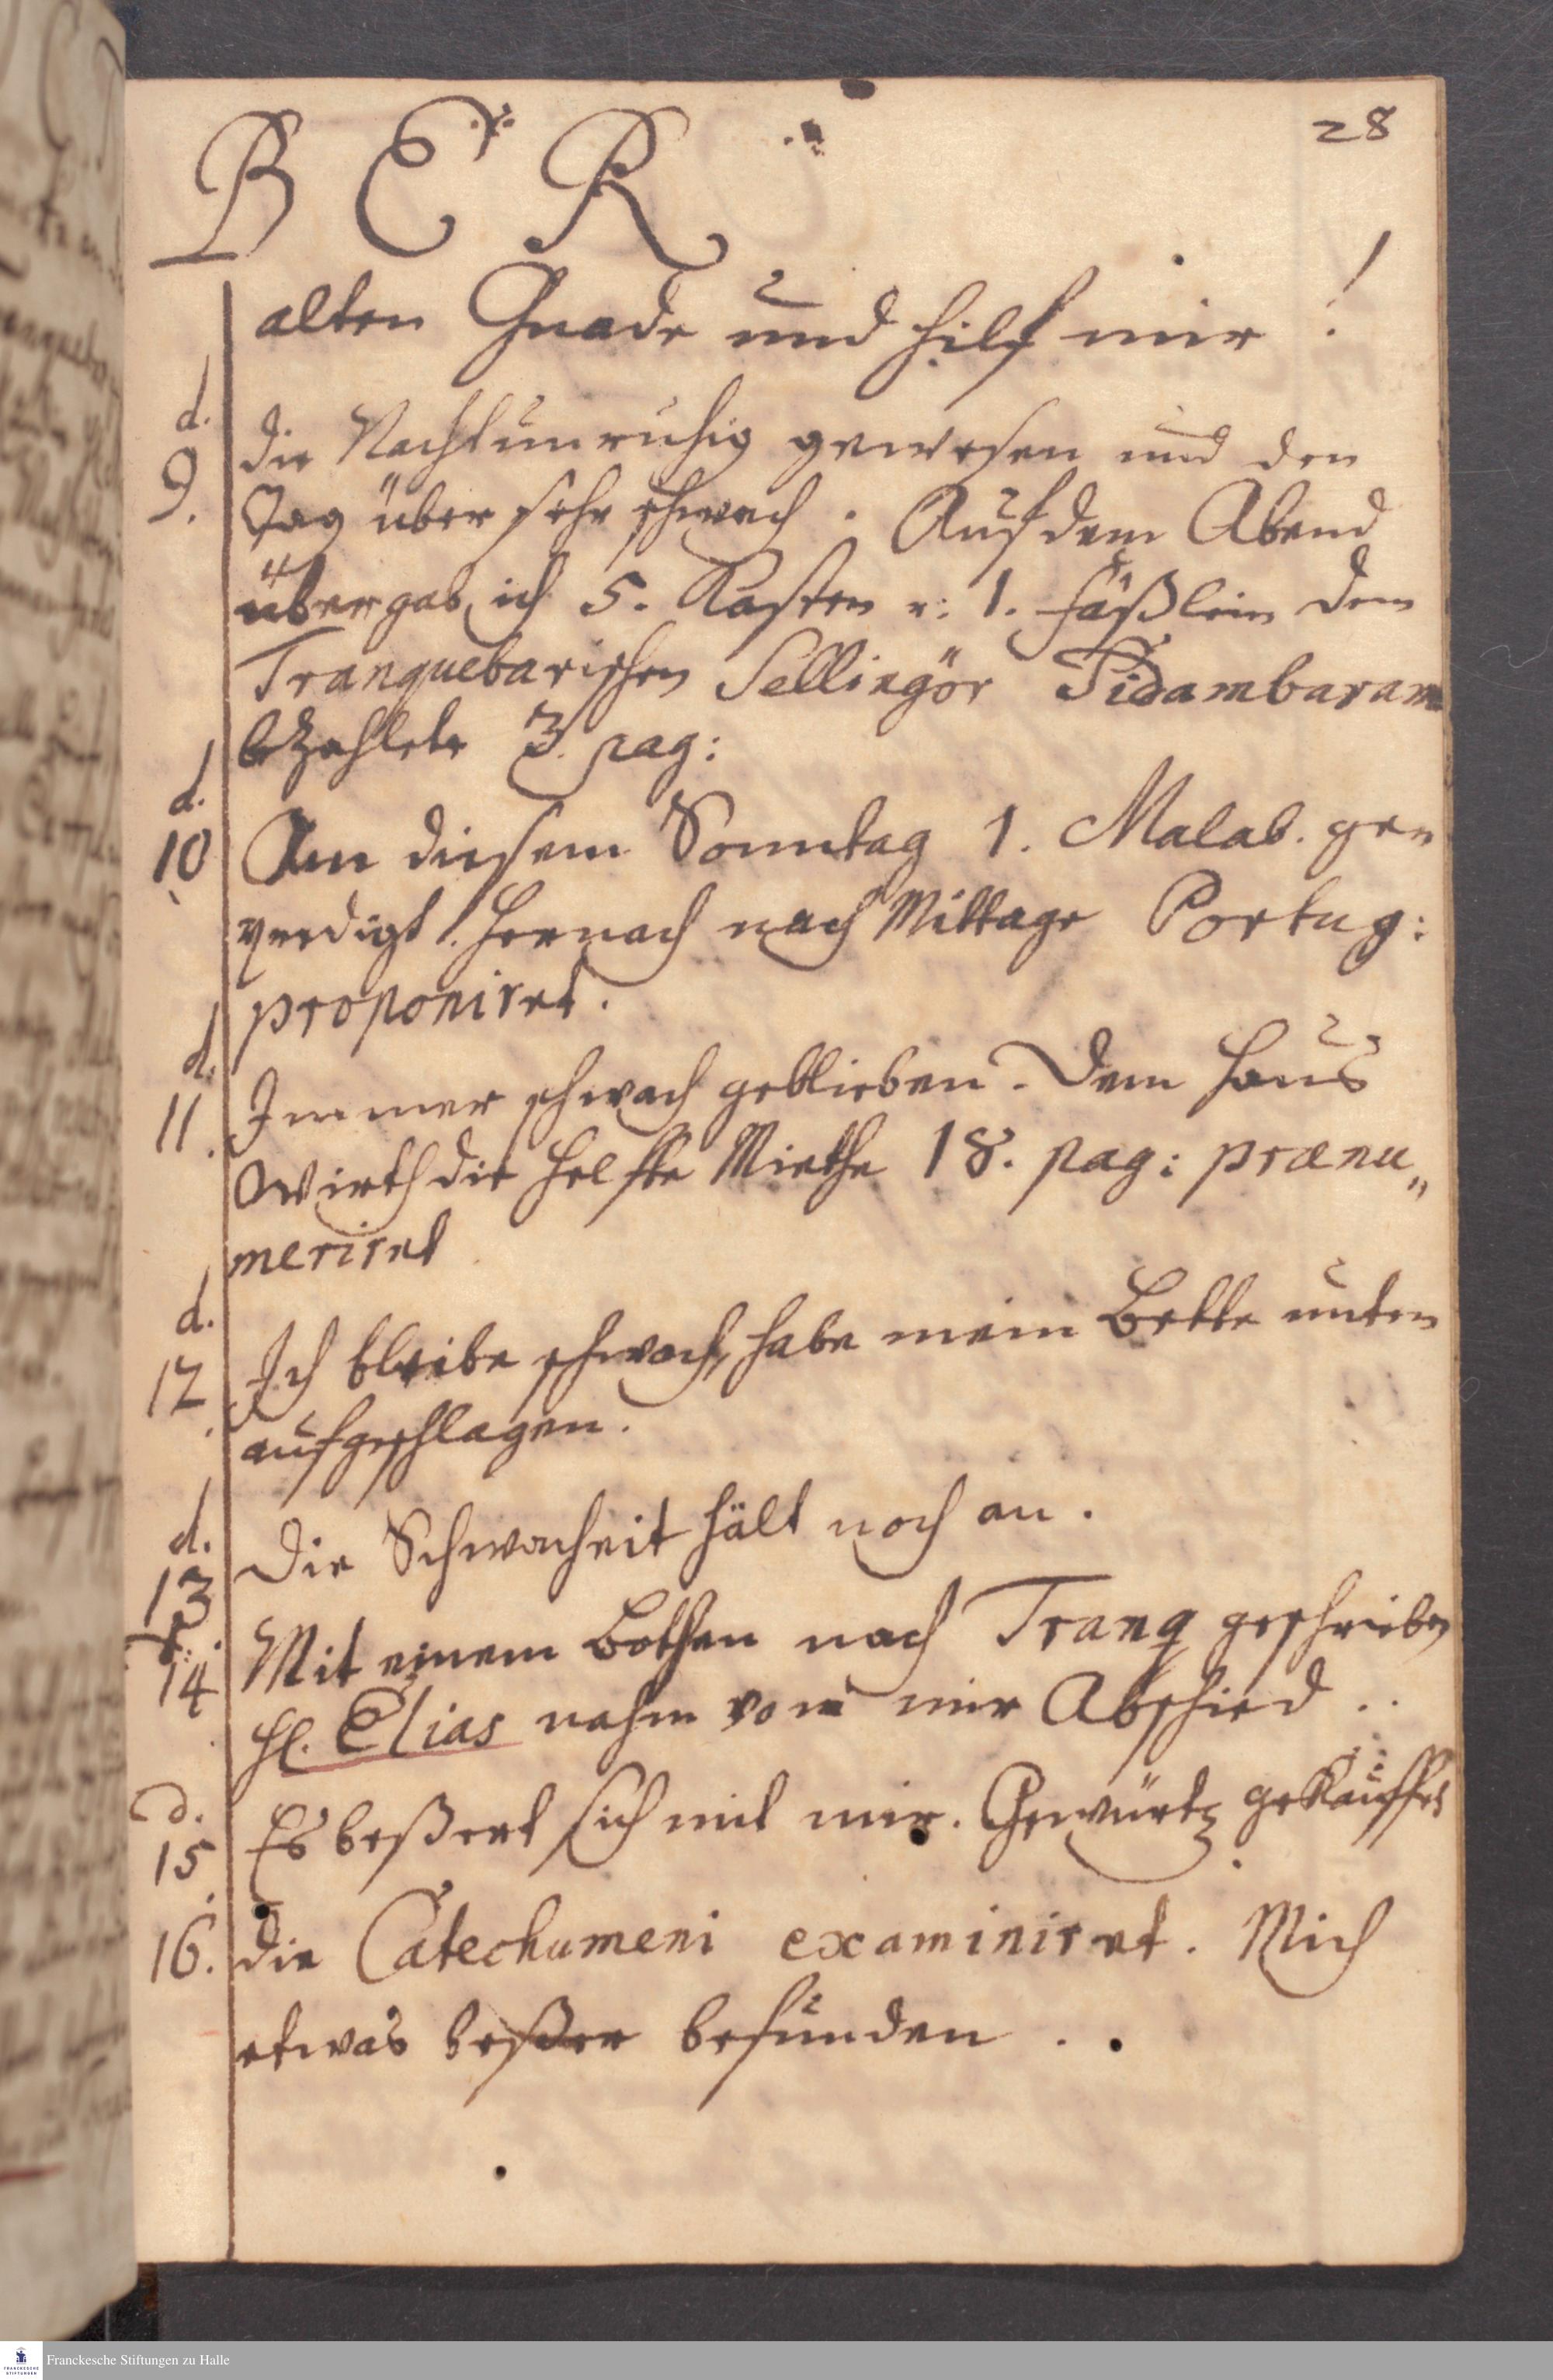 28
B E R
alten Gnade und hilf mir !
d. 9. die Nacht unruhig gewesen und den
Tag über sehr schwach. Auf dem Abend
übergab ich 5. Kasten u: 1. fäßlein dem
Tranquebarischen Sellingör Sidambaram
bezahlete 3. pag:
d. 10 Am diesem Sonntag 1. Malab. ge
predigt. Hernach nach Mittage Portug:
proponiret.
d. 11. Immer schwach geblieben. Dem Haus
Wirth die Helffte Miethe 18. pag: prænu„
meriret
d. 12. Ich bleibe schwach, habe mein Bette unten
aufgeschlagen.
d. 13 Die Schwacheit hält noch an.
d. 14 Mit einem Bothen nach Tranq geschrieben
H. Elias nahm von mir Abschied..
d. 15. Es beßert sich mit mir. Gewürtz gekauffet
16. die Catechumeni examiniret. Mich
etwas beßer befunden..
Franckesche Stiftungen zu Halle